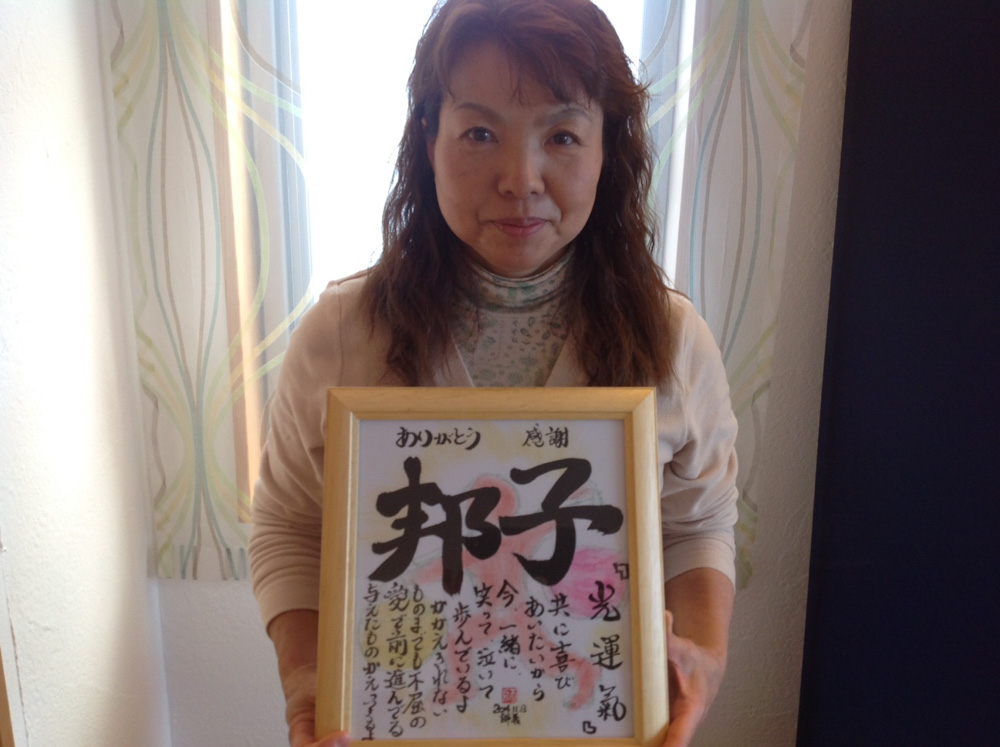 ありがとう 感謝
邦子
『光運氣』
共に喜び
あいたいから
今、一緒に
笑って 泣いて
歩んでいるよ
かかえきれない
ものまでも不屈の
愛で前に進んでる
与えたものかえってくるよ